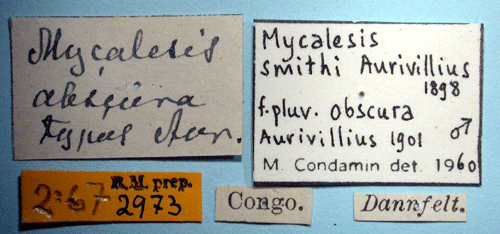 Mycalesis
obscura
typus Aur.
Mycalesis
smithi Aurivillius
1898
f. pluv. obscura
Aurivillius 1901 ♂
M. Condamin det. 1960
R.M. prep.
2973
Congo.
Dannfelt.